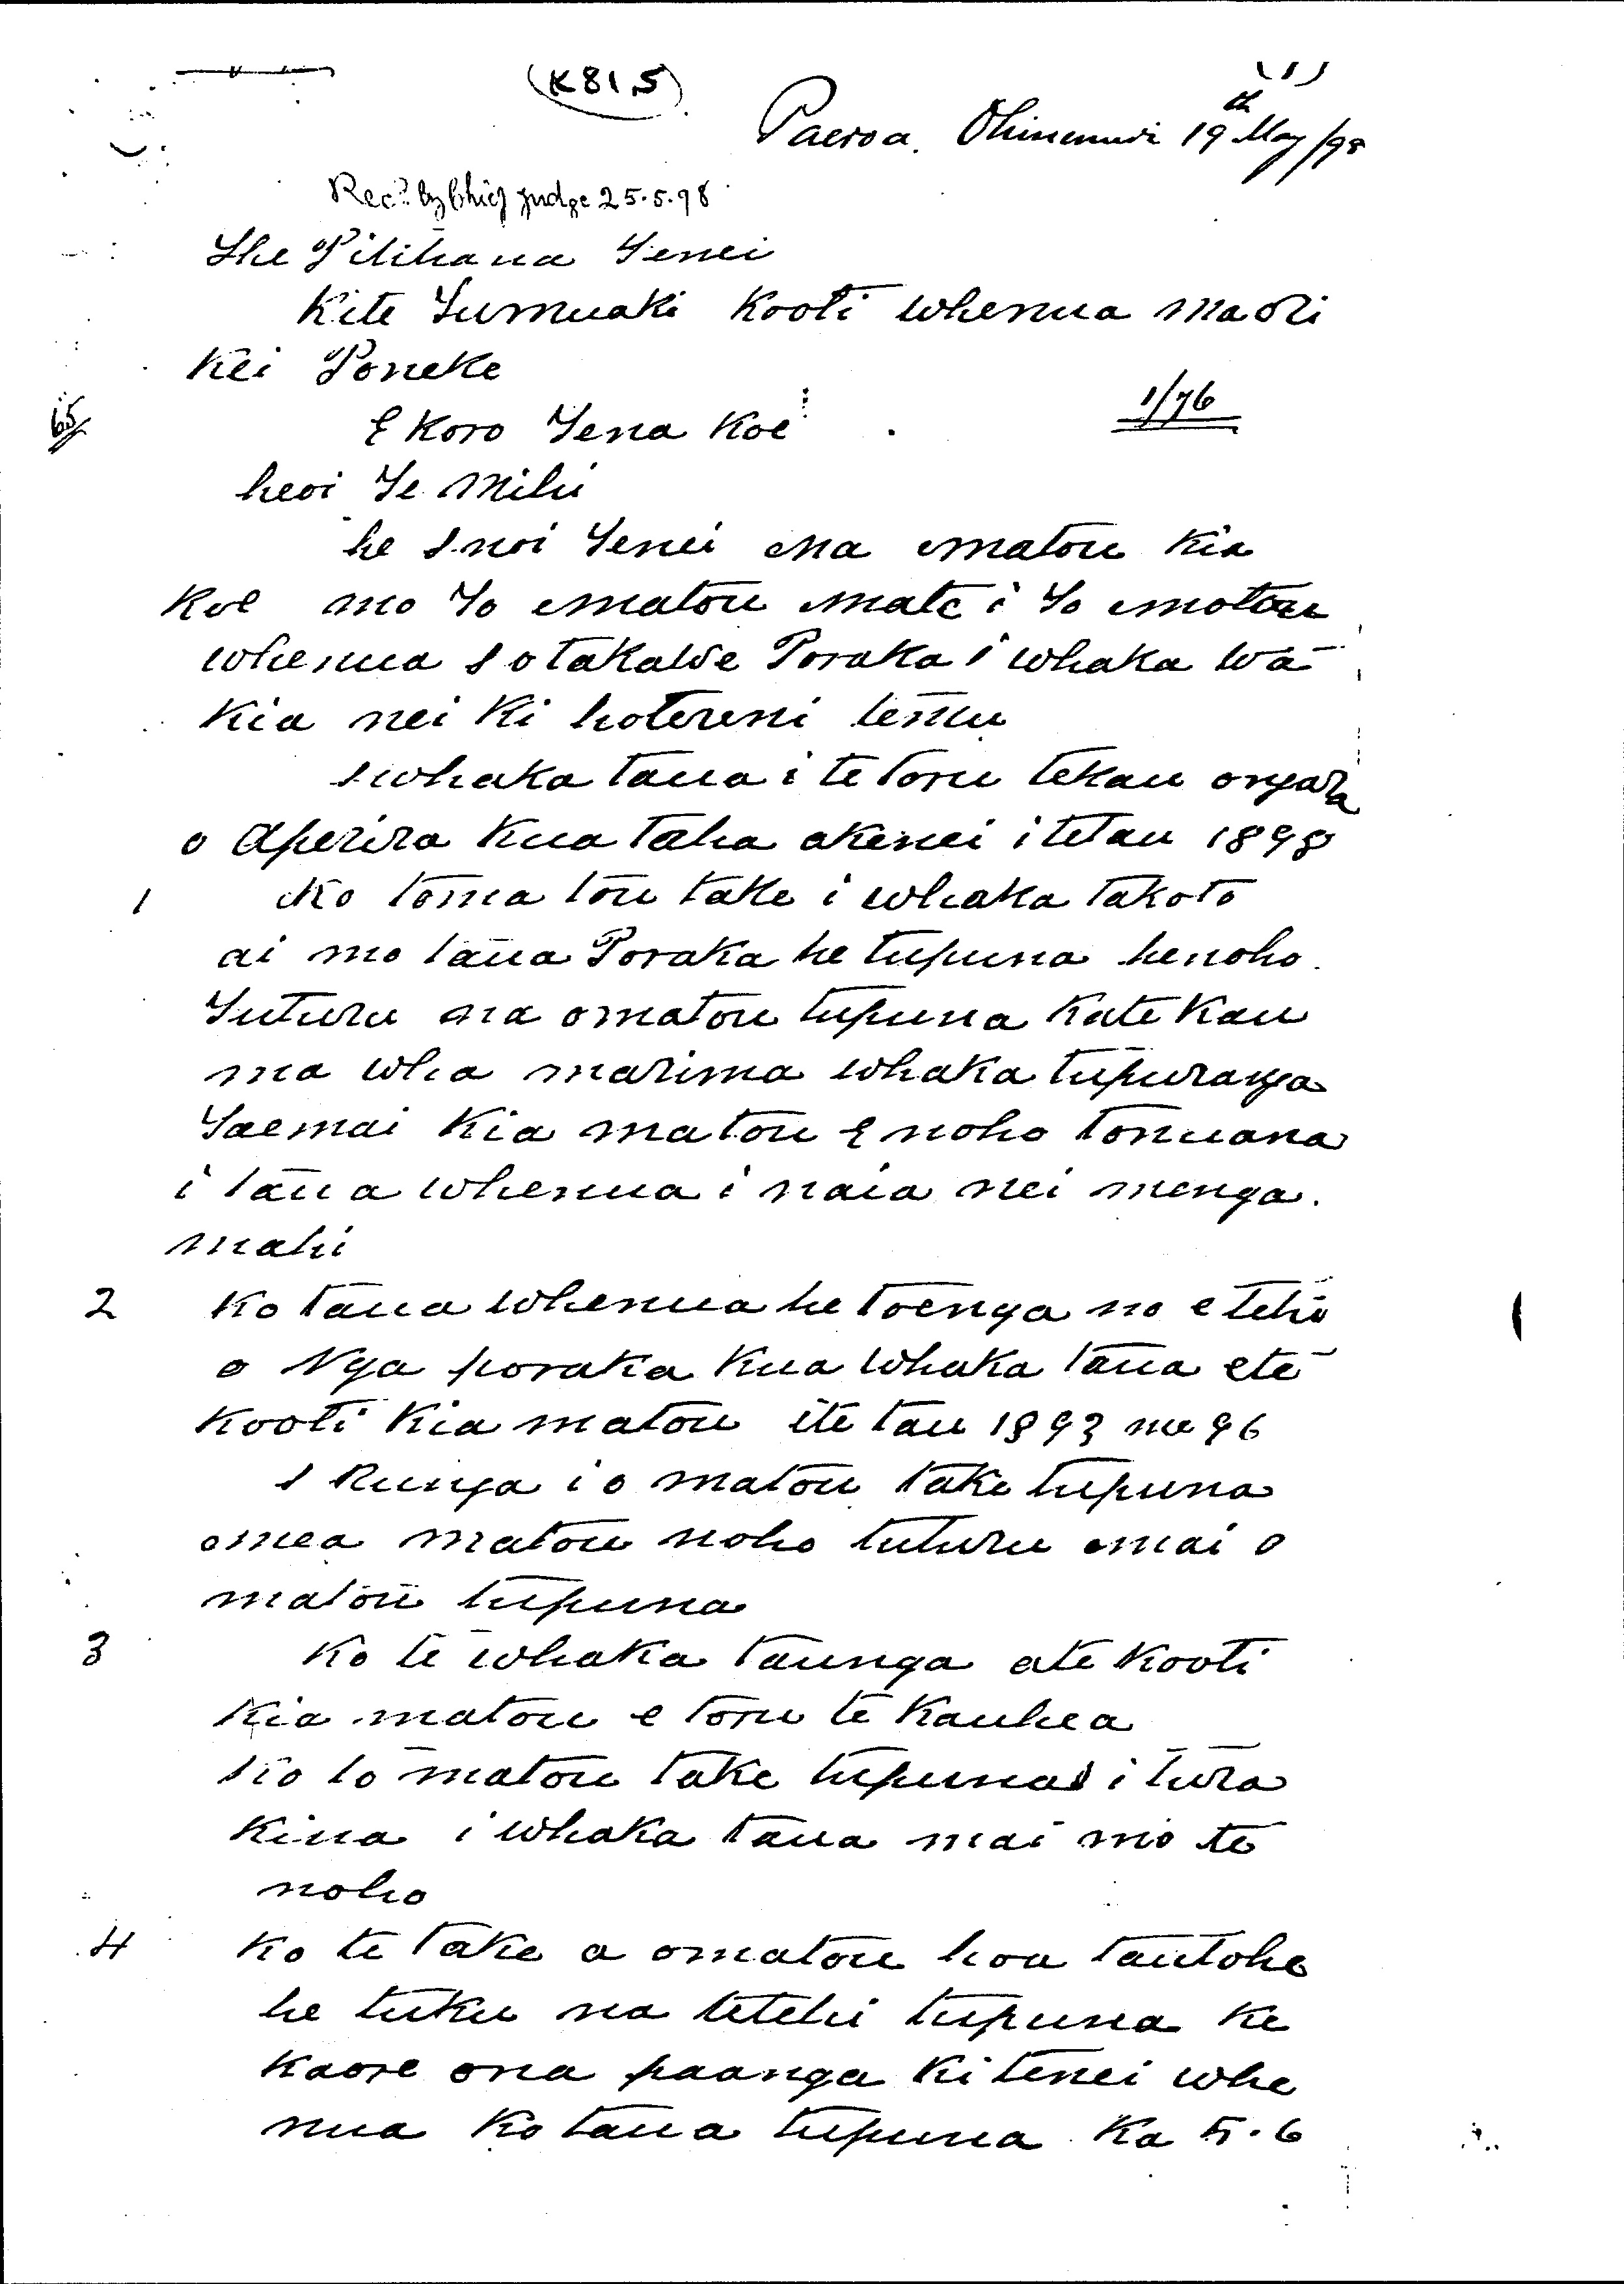 (K81.5)
(1)
Paeroa. Ohinemuri 19th May/98
Recd by Chief Judge 25.5.98
He Pitihana Tenei
Kite Tumuaki Kooti whenua maori
Kei Poneke
1/76
E Koro Tena Koe
heoi Te Mihi
he Inoi Tenei na matou Kia
Koe mo To matou mate i To matou
whenua I otakawe Poraka i whaka wa
Kia nei Ki hotereni temu
I whaka taua i te toru tekau ongara
o Aperira Kua taha akenei i tetau 1898
1 Ko toma tou take i whaka takoto
ai mo taua Poraka he tupuna henoho.
Tuturu na omatou tupuna Kate Kau
ma wha marima whaka tupuranga
Taemai Kia matou E noho tonuana
i taua whenua i naia nei menga.
mahi
2 Ko taua whenua he toenga no etehi
o Nga poraka Kua whaka taua ete
Kooti Kia matou ite tau 1893 me 96
I Runga i o matou take tupuna
omea matou noho tuturu mai o
matou tupuna
3 Ko te whaka taunga ate Kooti
Kia matou e toru te Kauhea
Ko to matou take tupuna i tura
Kina i whaka taua mai mo te
noho
4 Ko te take a omatou hoa tautohe
he tuku na tetehi tupuna Ke
Kaore ona paanga Ki tenei whe
nua Ko taua tupuna Ka 5.6